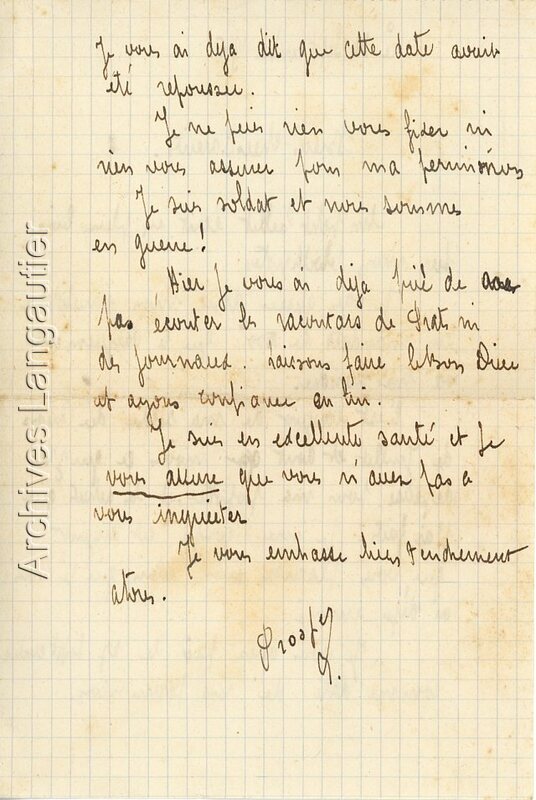 Je vous ai deja dit que cette date avait
été repoussee.
Je ne puis rien vous fixer ni
rien vous assurer pour ma permission
Je suis soldat et nous sommes
en guerre!
Hier je vous ai deja prié de
pas écouter les racontars de Prats ni
des journaux. Laissons faire le bon Dieu
et ayons confiance en lui.
Je suis en excellente santé et je
vous assure que vous n'avez pas a
vous inquieter
Je vous embrasse bien tendrement
a tous.
Prosper
Archives Langautier